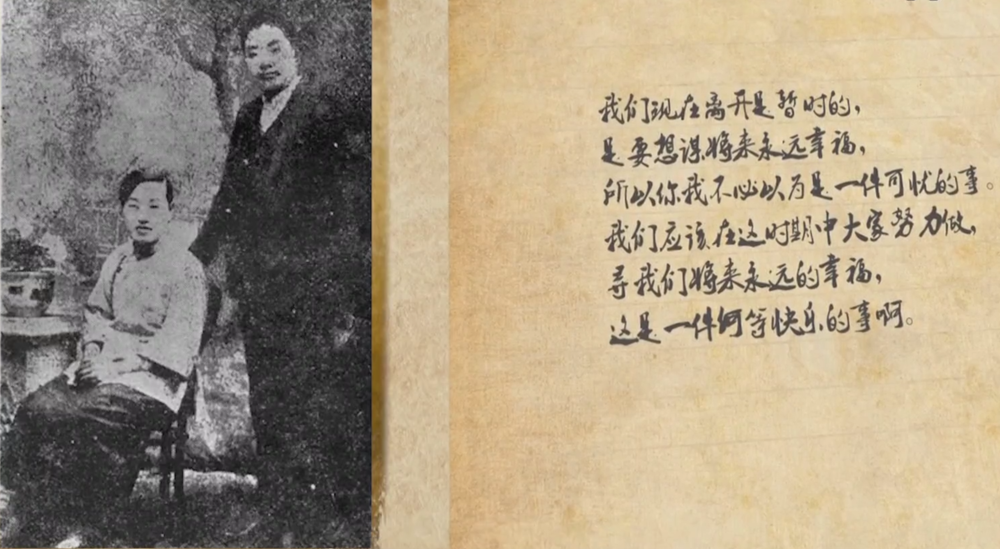 我们现在离开是暂时的，
是要想谋将来永远幸福，
所以你我不必以为是一件可忧的事。
我们应该在这时期中大家努力做，
寻我们将来永远的幸福，
这是一件何等快乐的事啊。